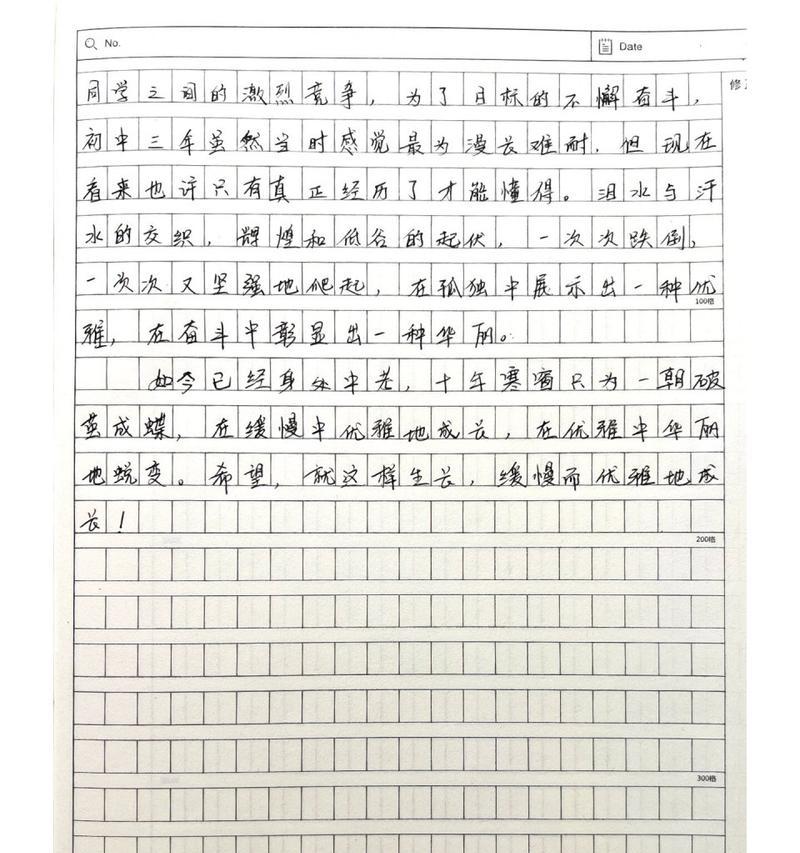 No.
Date
修正
同学之间的激烈竞争，为了目标的不懈奋斗，
初中三年虽然当时感觉最为漫长难耐，但现在
看来也许只有真正经历了才能懂得。泪水与汗
水的交织，辉煌和低谷的起伏，一次次跌倒，
一次次又坚强地爬起，在孤独中展示出一种优
100格
雅，在奋斗中彰显出一种华丽。
如今已经身处中考，十年寒窗只为一朝破
茧成蝶，在缓慢中优雅地成长，在优雅中华丽
地蜕变。希望，就这样生长，缓慢而优雅地成
长！
200格
300格